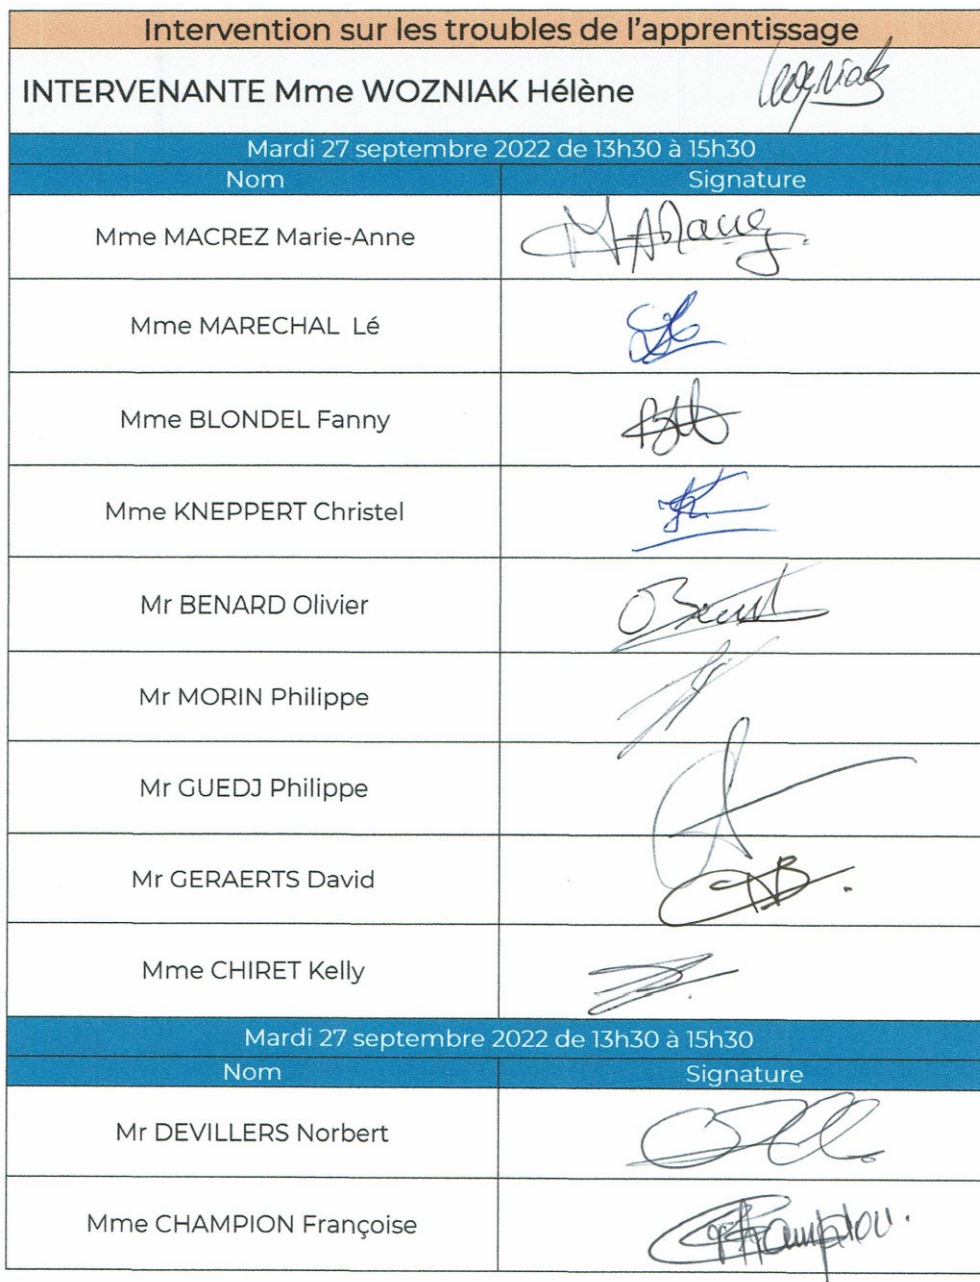 Intervention sur les troubles de l'apprentissage
INTERVENANTE Mme WOZNIAK Hélène Wozniak
Mardi 27 septembre 2022 de 13h30 à 15h30
Nom Signature
Mme MACREZ Marie-Anne
Mme MARECHAL Lé
Mme BLONDEL Fanny
Mme KNEPPERT Christel
Mr BENARD Olivier
Mr MORIN Philippe
Mr GUEDJ Philippe
Mr GERAERTS David
Mme CHIRET Kelly
Mardi 27 septembre 2022 de 13h30 à 15h30
Nom Signature
Mr DEVILLERS Norbert
Mme CHAMPION Françoise